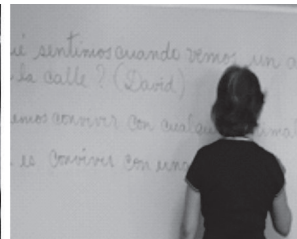 é sentimos cuando vemos un a
la calle? (David)
emos convivir con cualqu
es convivir con una